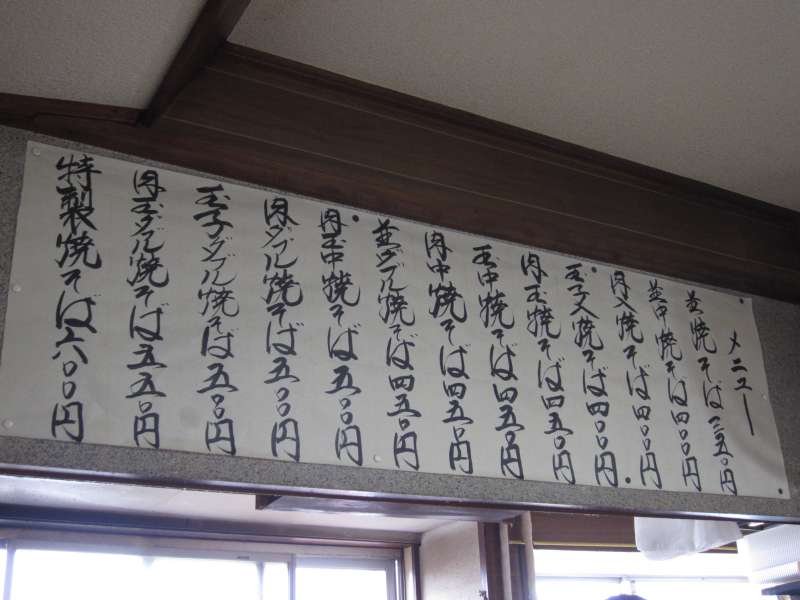 メニュー
並焼そば三五〇円
並中焼そば四〇〇円
肉入焼そば四〇〇円
玉子入焼そば四〇〇円
肉玉焼そば四五〇円
玉中焼そば四五〇円
肉中焼そば四五〇円
並ダブル焼そば四五〇円
肉玉中焼そば五〇〇円
肉ダブル焼そば五〇〇円
玉子ダブル焼そば五〇〇円
肉玉ダブル焼そば五五〇円
特製焼そば六〇〇円